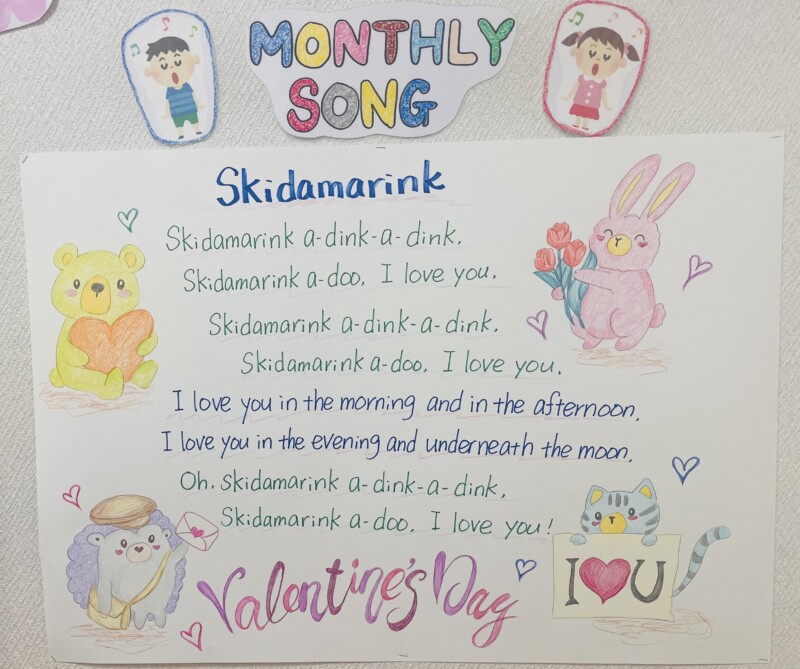 MONTHLY
SONG
Skidamarink
Skidamarink a-dink-a-dink,
Skidamarink a-doo, I love you,
Skidamarink a-dink-a-dink,
Skidamarink a-doo, I love you,
I love you in the morning and in the afternoon,
I love you in the evening and underneath the moon,
Oh, skidamarink a-dink-a-dink,
Skidamarink a-doo, I love you!
Valentine's Day
I ♥ U